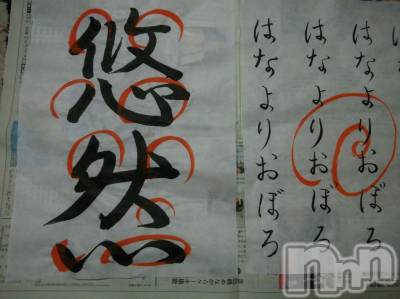 はなよりおぼろ
はなよりおぼろ
はなよりおぼろ
悠然